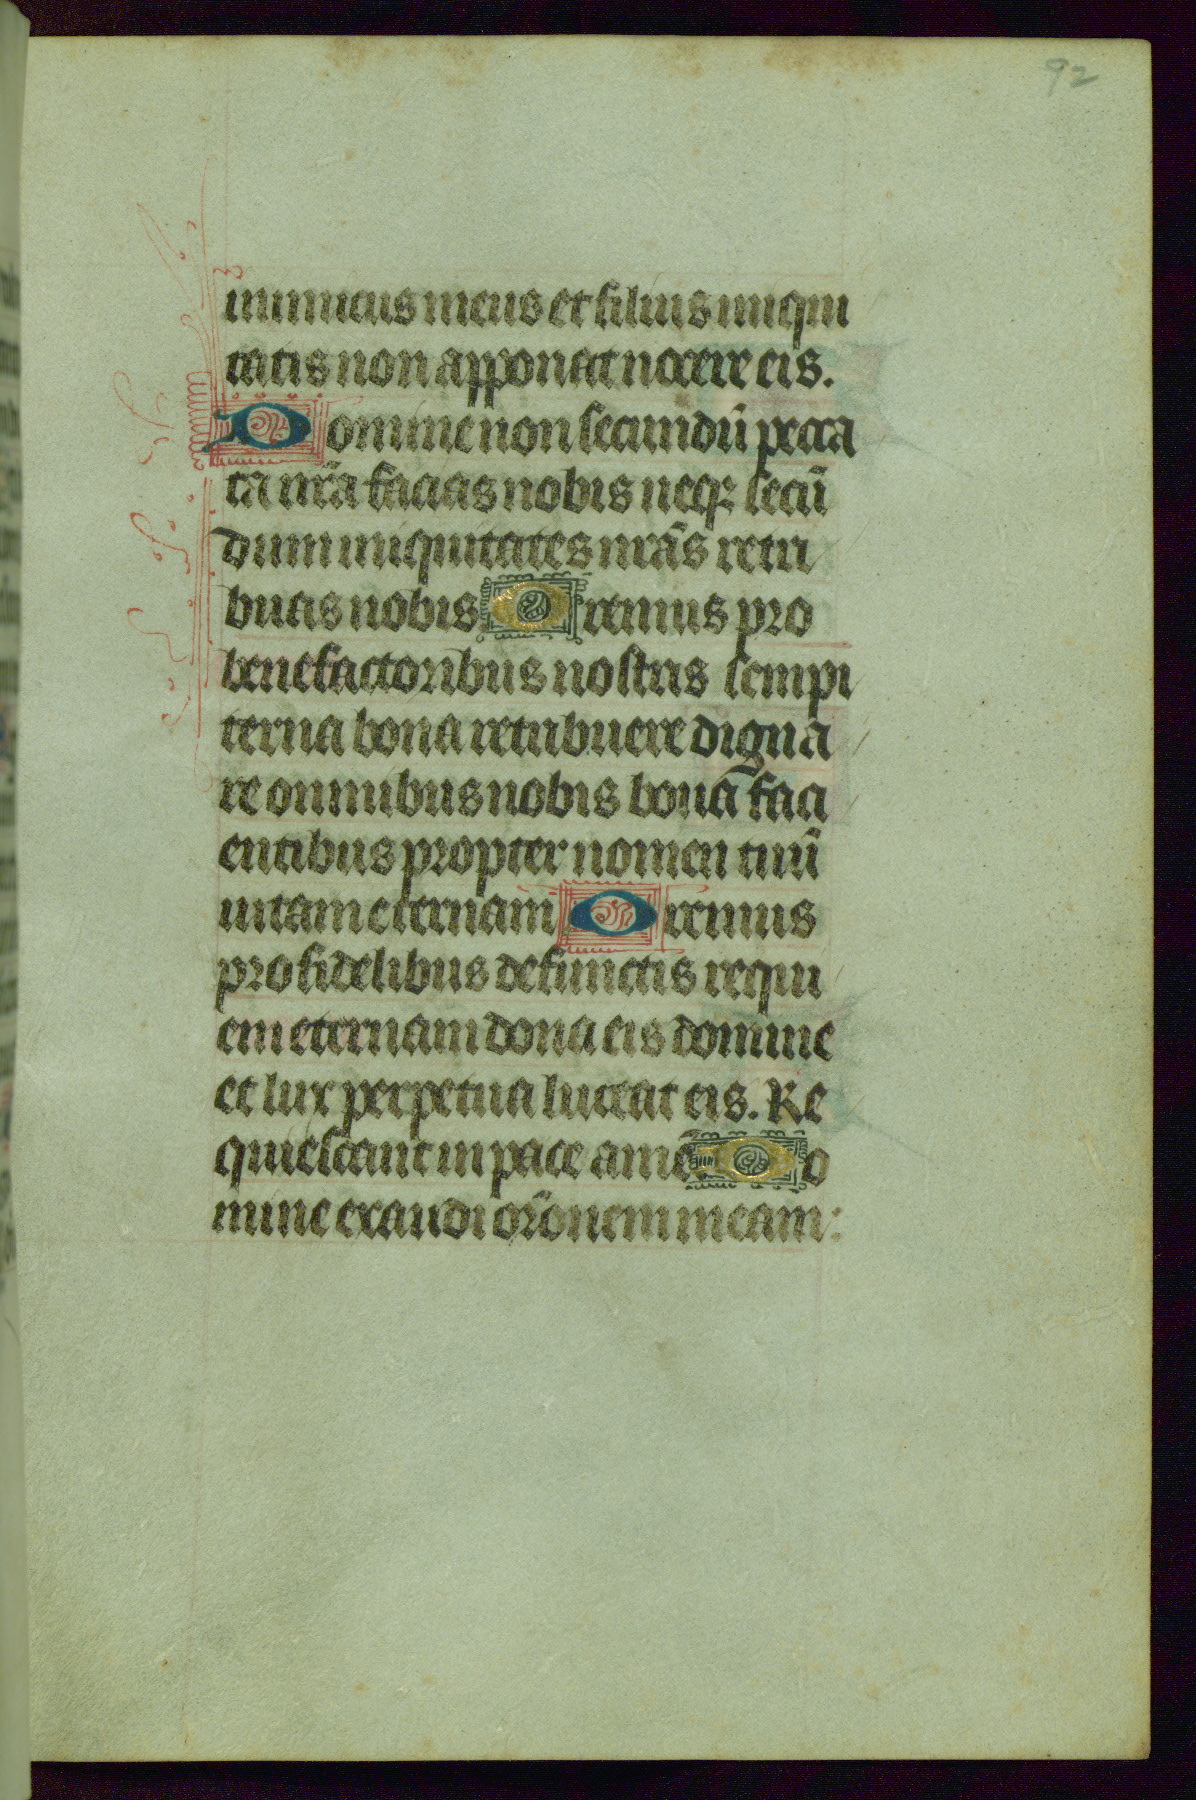 92
inimicus meus et filius iniqui
tatis non apponat nocere eis.
Domine non secundū pecca
ta nrā facias nobis neqꝫ secū
dum iniquitates nrās retri
buas nobis. Oremus pro
benefactoribus nostris sempi
terna bona retribuere digna
re omnibus nobis bona faci
entibus propter nomen tuū
uitam eternam Oremus
pro fidelibus defunctis requi
em eternam dona eis domine
et lux perpetua luceat eis. Re
quiescant in pace amē. Do
mine exaudi orōnem meam: